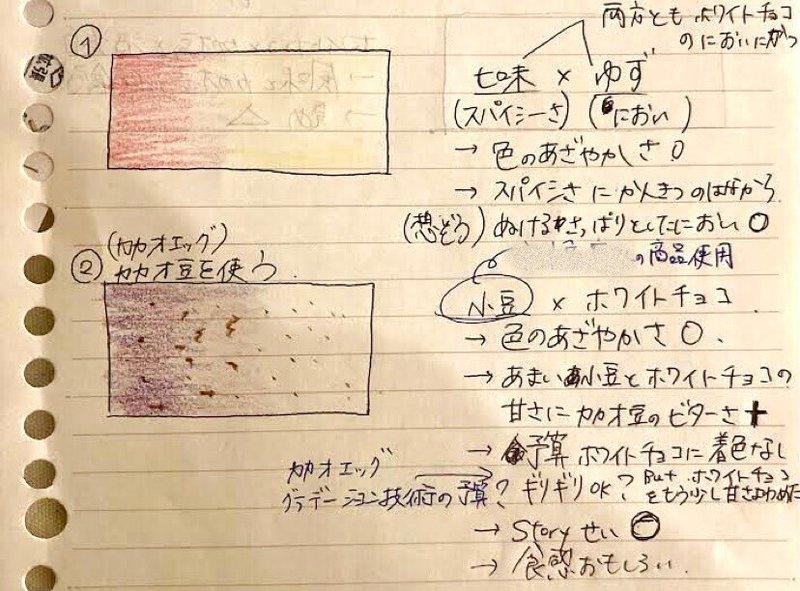 ①
両方とも ホワイトチョコ
のにおいにかつ
七味 × ゆず
(スパイシーさ) (におい)
→ 色のあざやかさ ○
→ スパイシさ にかんきつのはなから
(想ぞう) ぬけるさっぱりとしたにおい ○
(カカオエッグ)
② カカオ豆を使う.
の商品使用
小豆 × ホワイトチョコ
→ 色のあざやかさ ○.
→ あまい小豆とホワイトチョコの
甘さにカカオ豆のビターさ +
→ 予算 ホワイトチョコに着色なし
カカオエッグ
グラデーション技術の予算? ギリギリOK? But ホワイトチョコ
をもう少し甘さ
→ Storyせい ○
→ 食感おもしろい.